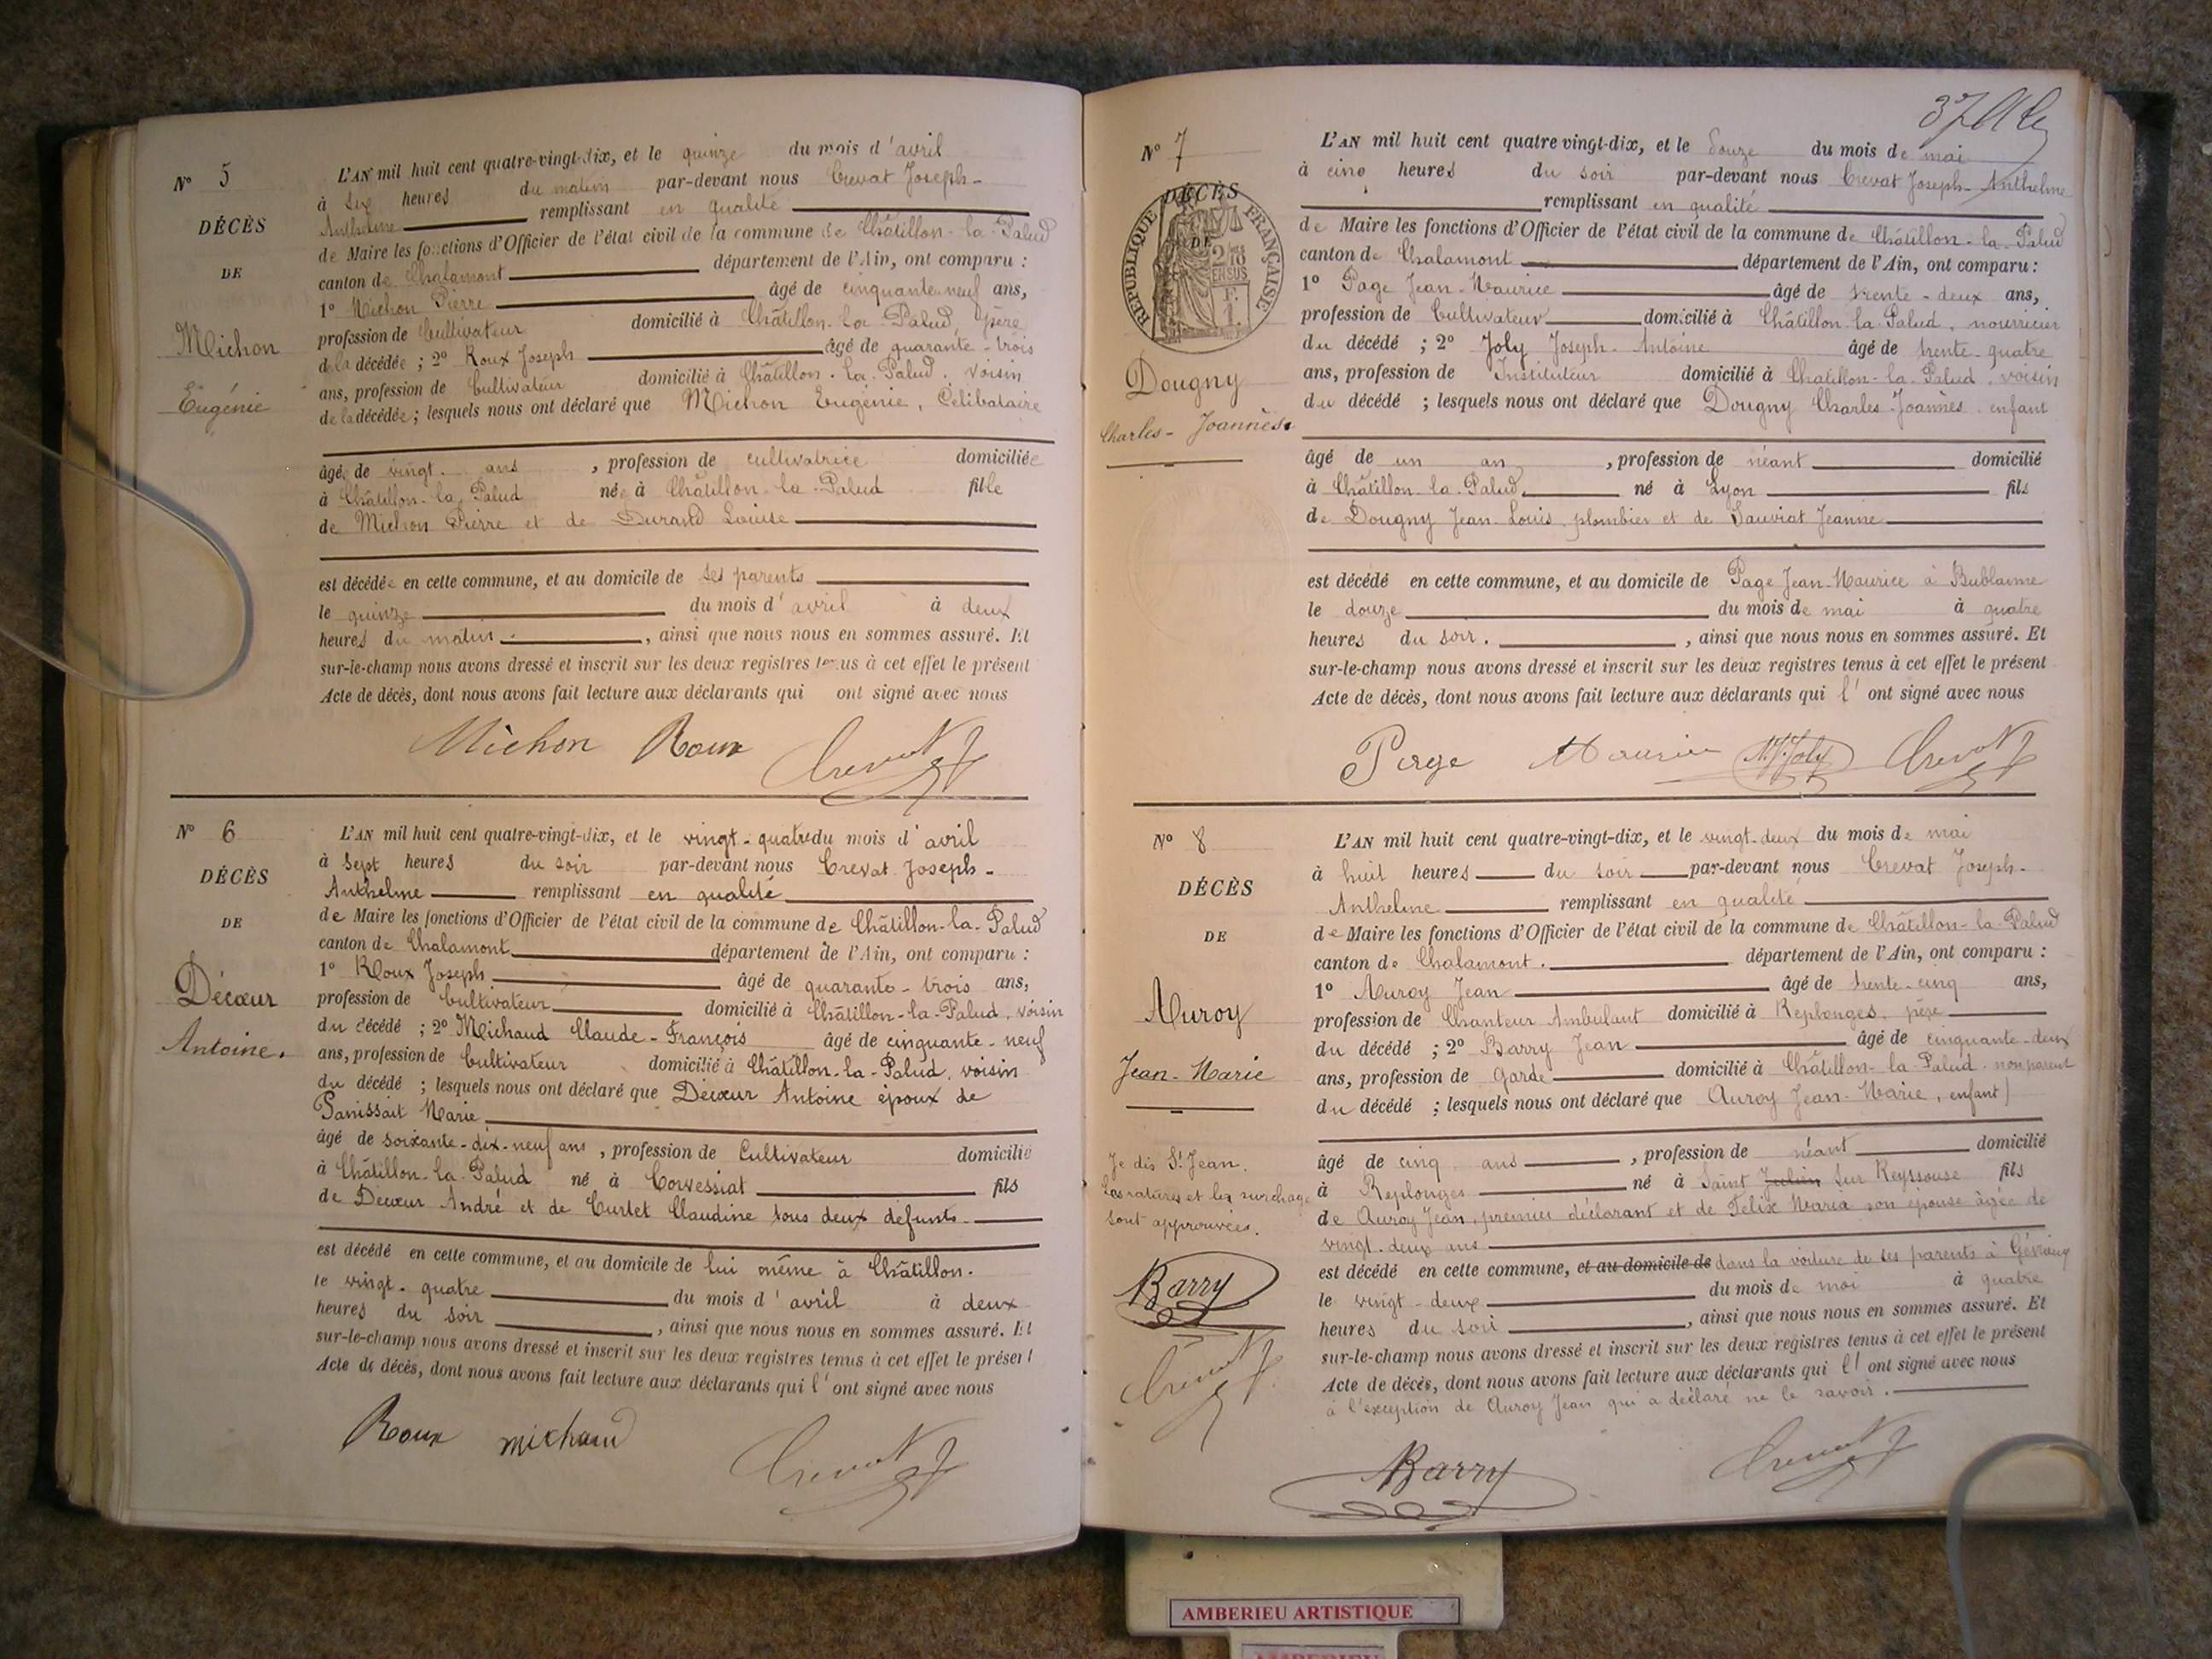 N° 5
DÉCÈS
DE
Michon
Eugénie
L'AN mil huit cent quatre-vingt-dix, et le quinze du mois d'avril
à six heures du matin par-devant nous Crevat Joseph-
Anthelme remplissant en qualité
de Maire les fonctions d'Officier de l'état civil de la commune de Châtillon-la-Palud
canton de Chalamont département de l'Ain, ont comparu :
1° Michon Pierre âgé de cinquante-neuf ans,
profession de Cultivateur domicilié à Châtillon-la-Palud, père
de la décédée ; 2° Roux Joseph âgé de quarante-trois
ans, profession de Cultivateur domicilié à Châtillon-la-Palud, voisin
de la décédée ; lesquels nous ont déclaré que Michon Eugénie, Célibataire
âgée de vingt ans , profession de cultivatrice domiciliée
à Châtillon-la-Palud née à Châtillon-la-Palud fille
de Michon Pierre et de Durand Louise
est décédée en cette commune, et au domicile de ses parents
le quinze du mois d'avril à deux
heures du matin , ainsi que nous nous en sommes assuré. Et
sur-le-champ nous avons dressé et inscrit sur les deux registres tenus à cet effet le présent
Acte de décès, dont nous avons fait lecture aux déclarants qui ont signé avec nous
Michon Roux Crevat
N° 6
DÉCÈS
DE
Décœur
Antoine.
L'AN mil huit cent quatre-vingt-dix, et le vingt-quatre du mois d'avril
à sept heures du soir par-devant nous Crevat Joseph-
Anthelme remplissant en qualité
de Maire les fonctions d'Officier de l'état civil de la commune de Châtillon-la-Palud
canton de Chalamont département de l'Ain, ont comparu :
1° Roux Joseph âgé de quarante-trois ans,
profession de Cultivateur domicilié à Châtillon-la-Palud, voisin
du décédé ; 2° Michaud Claude-François âgé de cinquante-neuf
ans, profession de Cultivateur domicilié à Châtillon-la-Palud, voisin
du décédé ; lesquels nous ont déclaré que Décœur Antoine époux de
Panissait Marie
âgé de soixante-dix-neuf ans , profession de Cultivateur domicilié
à Châtillon-la-Palud né à Corvessiat fils
de Décœur André et de Curtet Claudine tous deux défunts.
est décédé en cette commune, et au domicile de lui même à Châtillon.
le vingt-quatre du mois d'avril à deux
heures du soir , ainsi que nous nous en sommes assuré. Et
sur-le-champ nous avons dressé et inscrit sur les deux registres tenus à cet effet le présent
Acte de décès, dont nous avons fait lecture aux déclarants qui l'ont signé avec nous
Roux michaud Crevat
37
N° 7
RÉPUBLIQUE FRANÇAISE
DÉCÈS
DE
Dougny
Charles-Joannès.
L'AN mil huit cent quatre vingt-dix, et le douze du mois de mai
à cinq heures du soir par-devant nous Crevat Joseph-Anthelme
remplissant en qualité
de Maire les fonctions d'Officier de l'état civil de la commune de Châtillon-la-Palud
canton de Chalamont département de l'Ain, ont comparu :
1° Page Jean-Maurice âgé de trente-deux ans,
profession de Cultivateur domicilié à Châtillon-la-Palud, nourricier
du décédé ; 2° Joly Joseph-Antoine âgé de trente-quatre
ans, profession de Instituteur domicilié à Châtillon-la-Palud, voisin
du décédé ; lesquels nous ont déclaré que Dougny Charles-Joannès, enfant
âgé de un an , profession de néant domicilié
à Châtillon-la-Palud né à Lyon fils
de Dougny Jean-Louis, plombier et de Sauviat Jeanne
est décédé en cette commune, et au domicile de Page Jean-Maurice à Bublanne
le douze du mois de mai à quatre
heures du soir. , ainsi que nous nous en sommes assuré. Et
sur-le-champ nous avons dressé et inscrit sur les deux registres tenus à cet effet le présent
Acte de décès, dont nous avons fait lecture aux déclarants qui l'ont signé avec nous
Page Maurice Joly Crevat
N° 8
DÉCÈS
DE
Auroy
Jean-Marie
Je dis St Jean.
Les ratures et les surcharges
sont approuvées.
Barry
Crevat
L'AN mil huit cent quatre-vingt-dix, et le vingt-deux du mois de mai
à huit heures du soir par-devant nous Crevat Joseph-
Anthelme remplissant en qualité
de Maire les fonctions d'Officier de l'état civil de la commune de Châtillon-la-Palud
canton de Chalamont. département de l'Ain, ont comparu :
1° Auroy Jean âgé de trente-cinq ans,
profession de Chanteur Ambulant domicilié à Replonges, père
du décédé ; 2° Barry Jean âgé de cinquante-deux
ans, profession de Garde domicilié à Châtillon-la-Palud, non parent
du décédé ; lesquels nous ont déclaré que Auroy Jean-Marie, enfant
âgé de cinq ans , profession de néant domicilié
à Replonges né à Saint Julien Sur Reyssouse fils
de Auroy Jean, premier déclarant et de Félix Maria son épouse âgée de
vingt-deux ans
est décédé en cette commune, et au domicile de dans la voiture de ses parents à Gévrieux
le vingt-deux du mois de mai à quatre
heures du soir , ainsi que nous nous en sommes assuré. Et
sur-le-champ nous avons dressé et inscrit sur les deux registres tenus à cet effet le présent
Acte de décès, dont nous avons fait lecture aux déclarants qui l'ont signé avec nous
à l'exception de Auroy Jean qui a déclaré ne le savoir.
Barry Crevat
AMBERIEU ARTISTIQUE
AMBERIEU